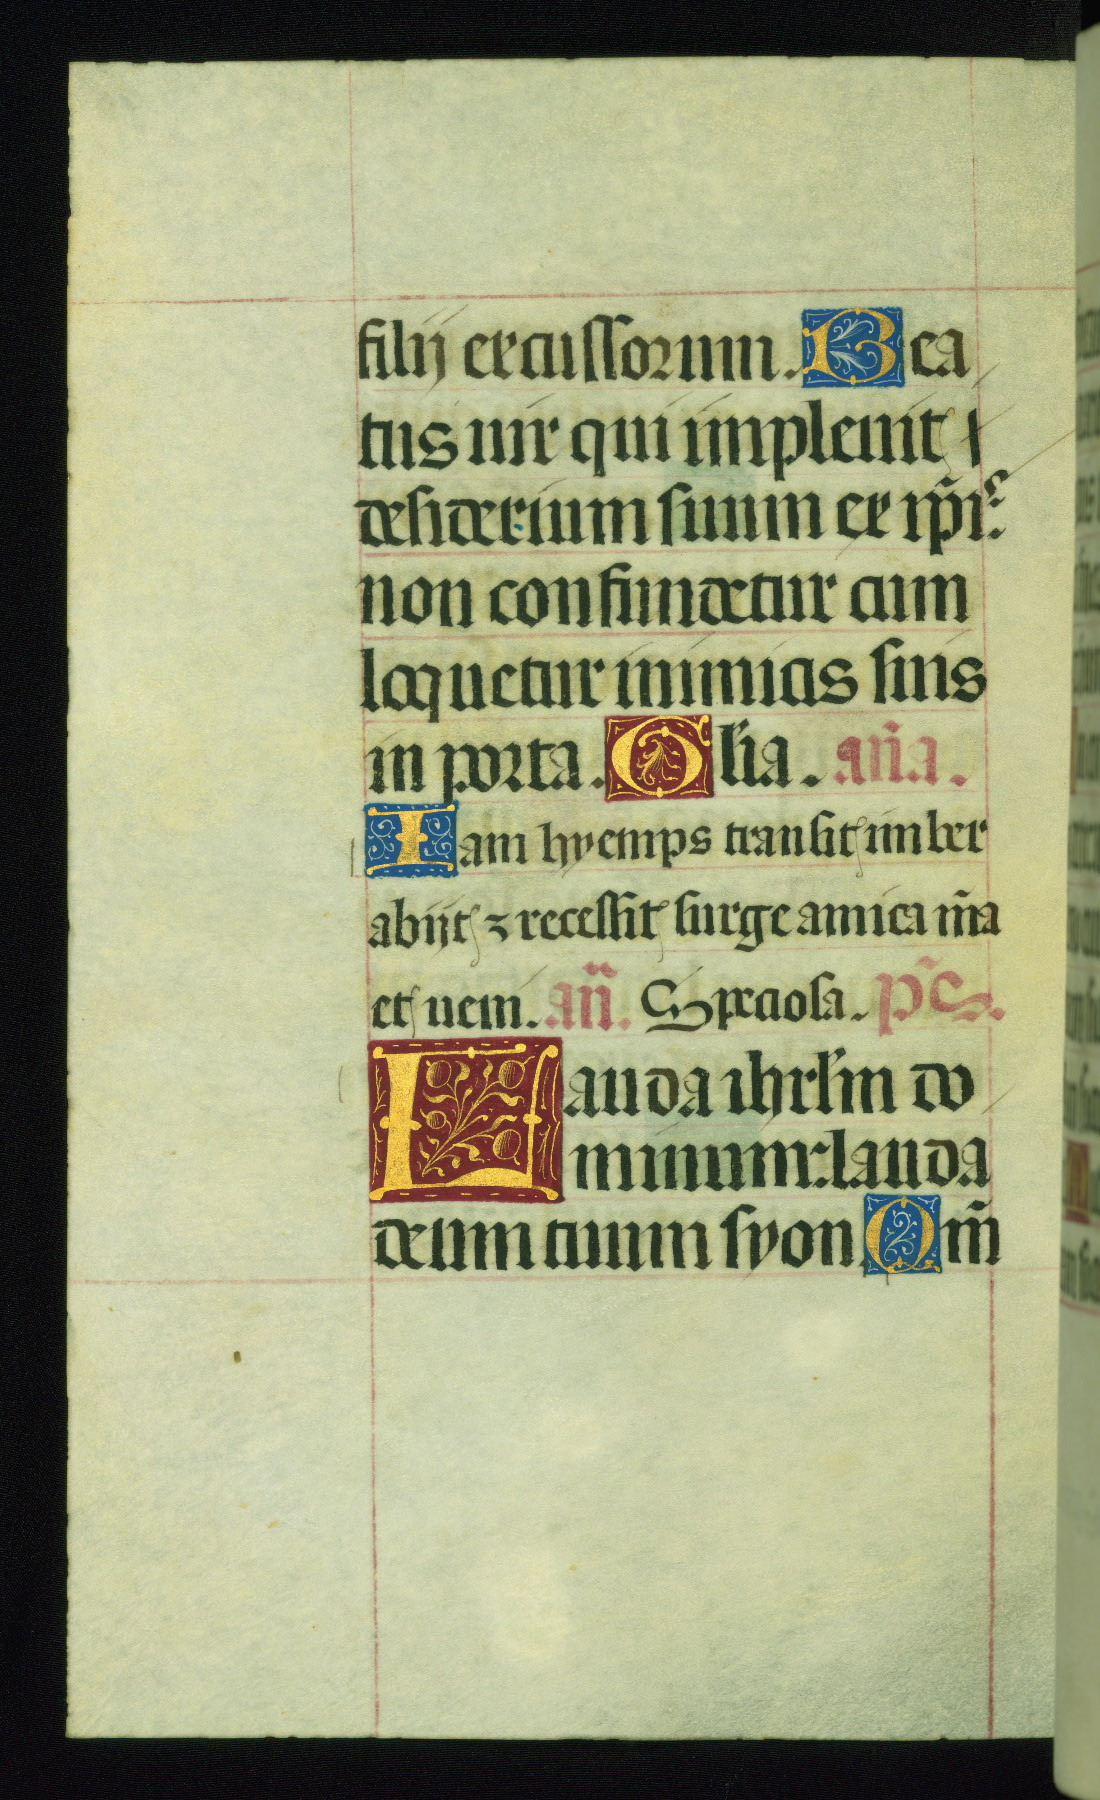 filij excussorum. Bea
tus uir qui impleuit
desiderium suum ex ip̄is
non confundetur cum
loquetur inimicis suis
in porta. Gl̄ia. an̄a.
Iam hyemps transit imber
abijt ⁊ recessit surge amica m̄a
et ueni. an̄. Speciosa. p̄s.
Lauda ihrl̄m do
minum: lauda
deum tuum syon. Qm̄